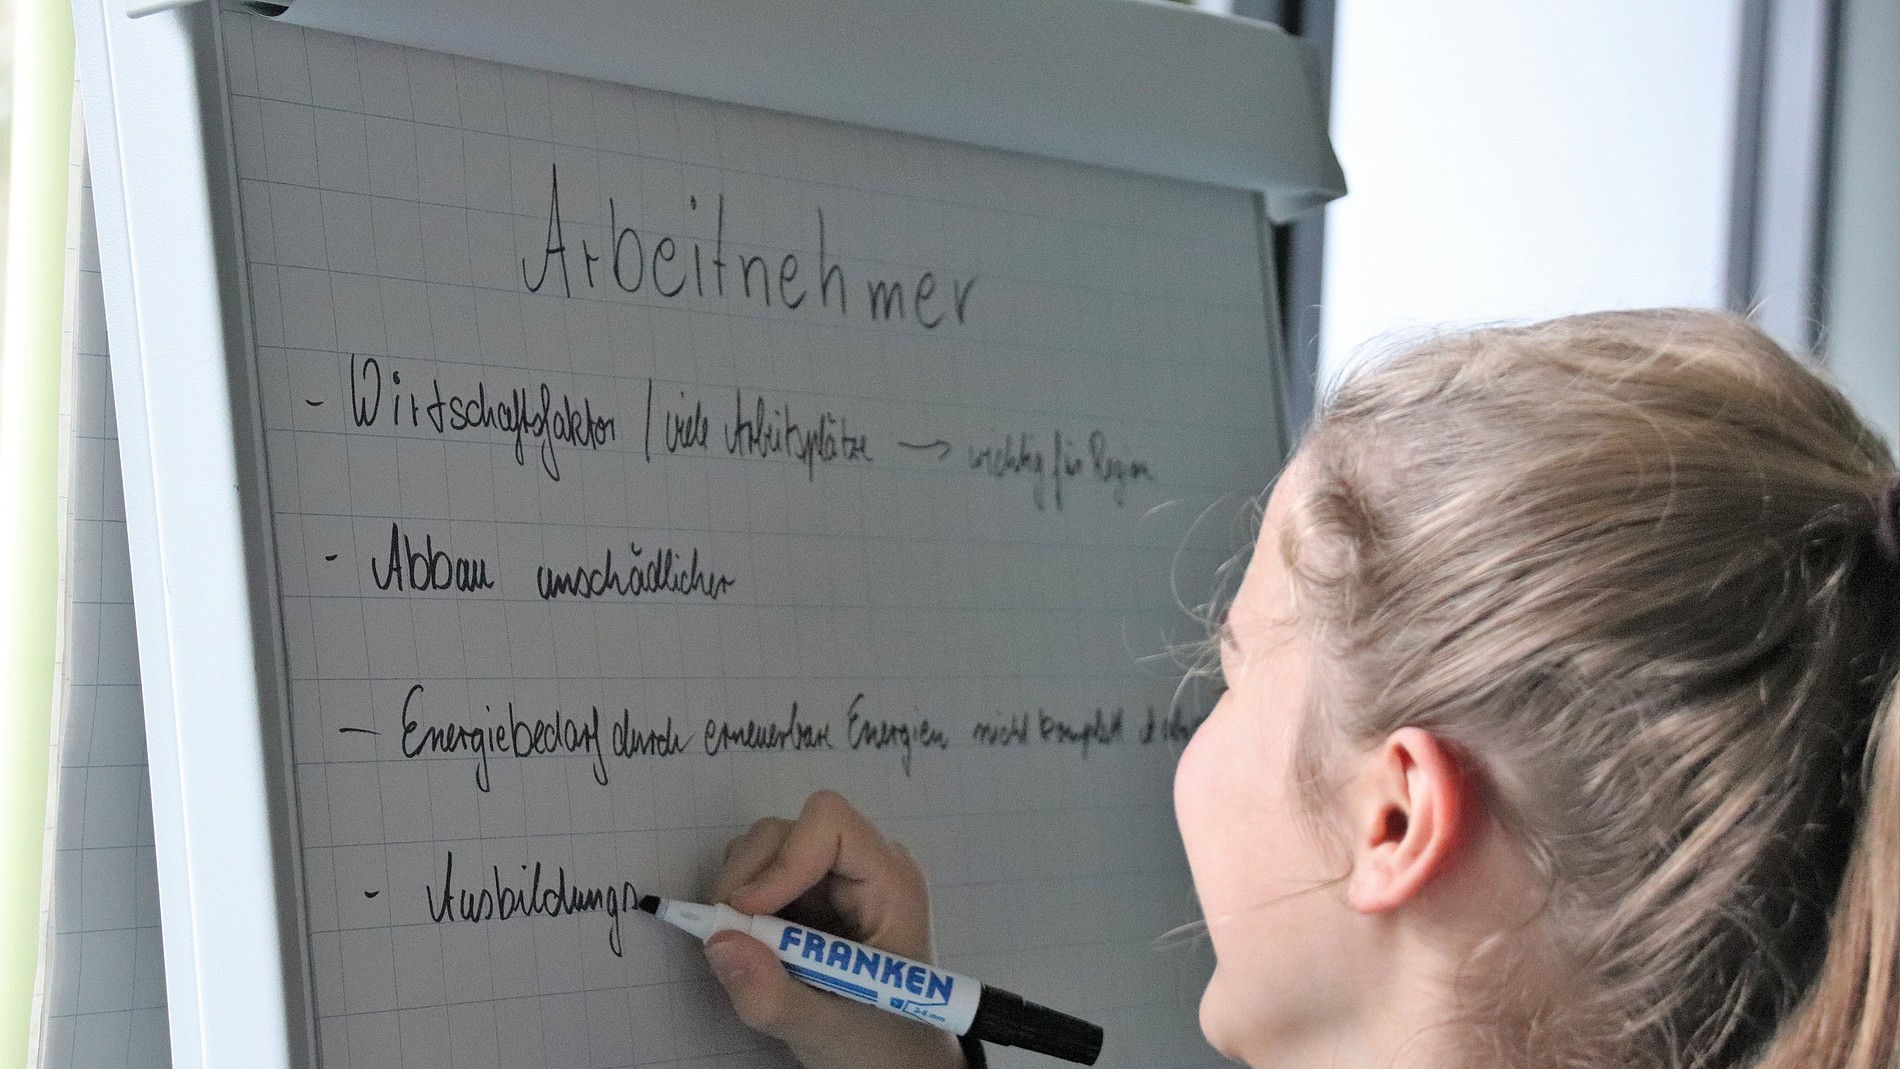 Arbeitnehmer
- Wirtschaftsfaktor / viele Arbeitsplätze → wichtig für Region
- Abbau unschädlicher
- Energiebedarf durch erneuerbare Energien nicht komplett
- Ausbildungs
FRANKEN
2-6 mm